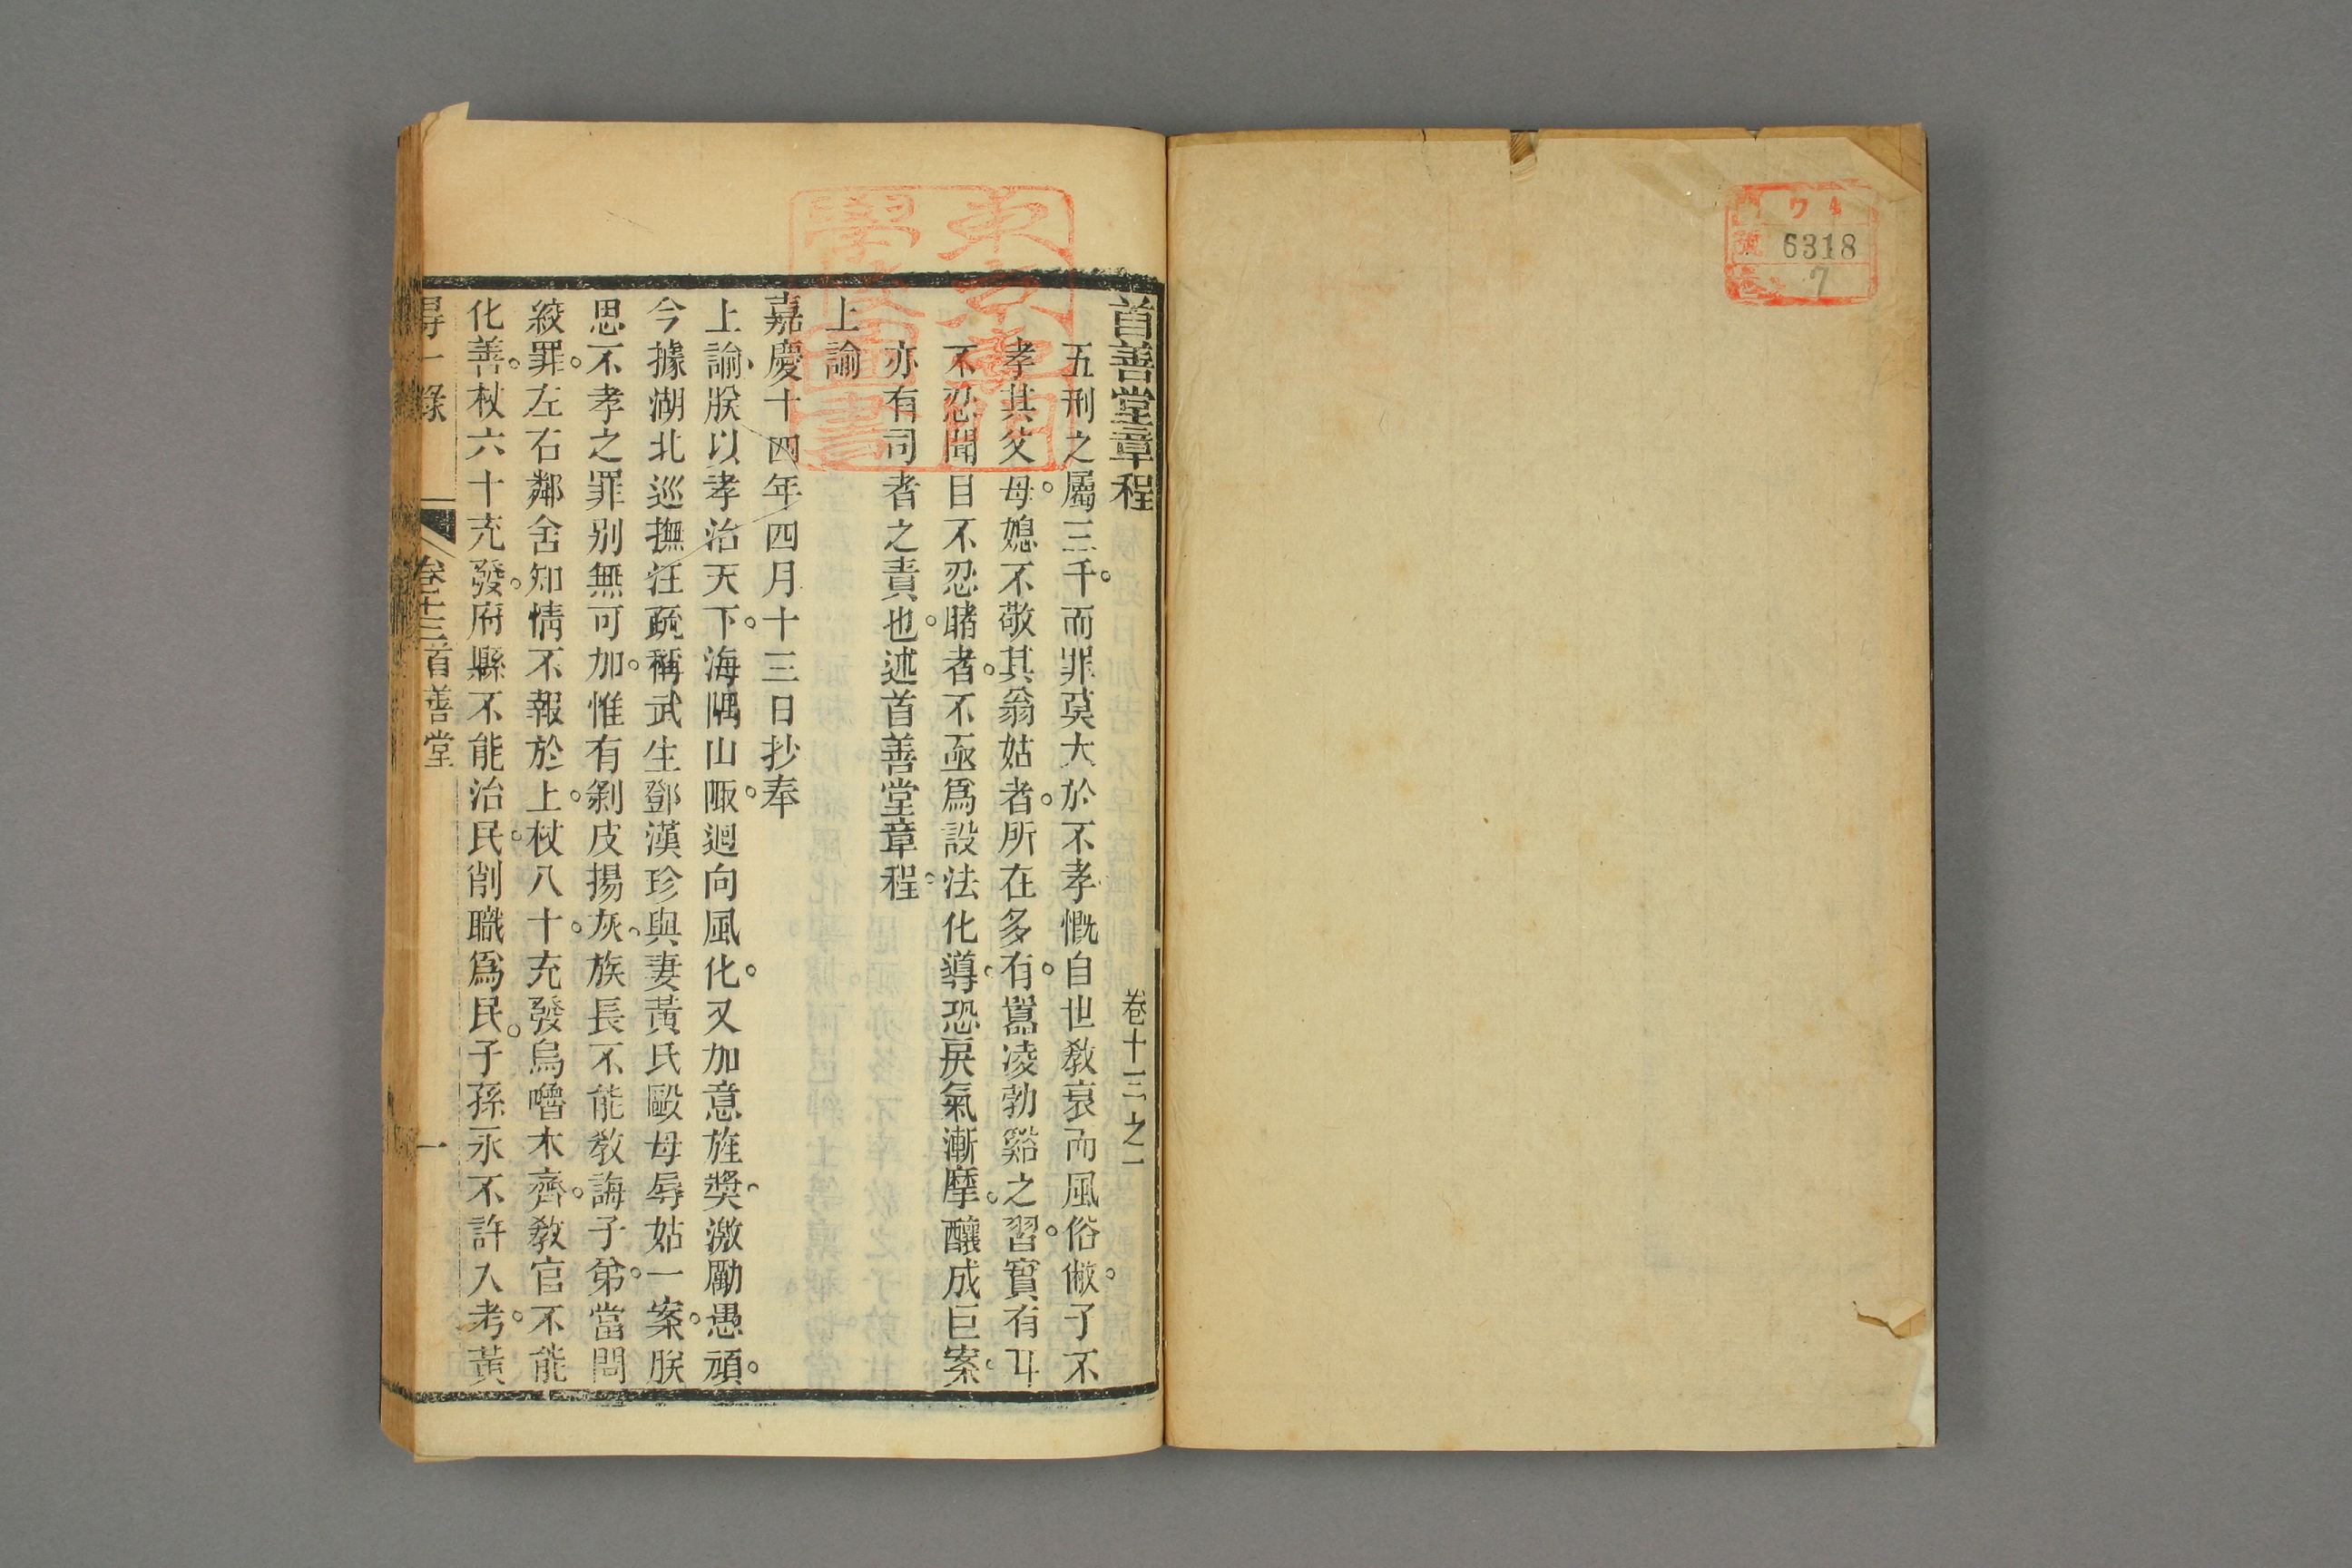 ワ4
號 6318
7
首善堂章程 卷十三之一
五刑之屬三千。而罪莫大於不孝慨自世教衰而風俗倣。子不
孝其父母。媳不敬其翁姑者。所在多有。嚚凌勃谿之習。實有耳
不忍聞目不忍睹者。不亟爲設法化導。恐戾氣漸摩。釀成巨案。
亦有司者之責也。述首善堂章程。
上諭
嘉慶十四年四月十三日抄奉
上諭、朕以孝治天下。海隅山陬。廻向風化。又加意旌獎。激勵愚頑。
今據湖北巡撫汪疏稱武生鄧漢珍與妻黃氏毆母辱姑一案。朕
思不孝之罪别無可加。惟有剝皮揚灰。族長不能教誨子弟。當問
絞罪。左右鄰舍知情不報於上。杖八十。充發烏嚕木齊。教官不能
化善。杖六十充發。府縣不能治民。削職爲民。子孫永不許入考。黃
得一錄 卷十三首善堂 一
東京專門
學校圖書